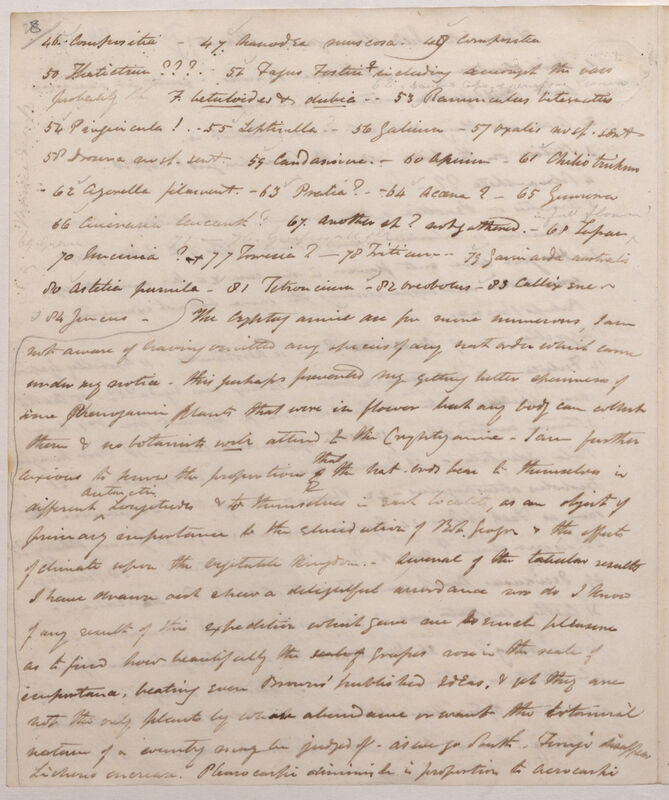 28
46. Compositia - 47 Nanodea muscosa. 48 Composita
50 Thalictrum ??? - 51 Fagus Fosteri including amongst the vars
probably the F. betuloides & dubia -- 53 Ranunculus
54 Pinguicula! - 55 - 56 Galium - 57 Oxalis no sp. sent
58 Drosera no sp. sent 59 Cardamine - 60 Apium - 61
- 62 Azorella filament - 63 Pratia? - 64 Acaena? - 65
66 Cineraria leucanth? 67. Another sp? not gathered. - 68
70 Uncinia? & 77 ? - 78 Triticum - 79 Gaimarda australis
80 Astelia pumila - 81 Tetroncium - 82 Oreobolus - 83 Callixene
84 Juncus - The Cryptogamiae are far more numerous, I am
not aware of having omitted any species of any nat order which came
under my notice - this perhaps prevented my getting better specimens of
some Phenogamic plants that were in flower but any body can collect
them & no botanists will attend to the Cryptogamiae - I am further
anxious to know the proportion that the nat. ords bear to themselves in
different Longitudes & to themselves in each locality, as an object of
primary importance to the elucidation of Bot. Geogr & the effects
of climate upon the vegetable Kingdom. - Several of the tabular results
I have drawn out shew a delightful accordance nor do I know
of any result of this expedition which gave me so much pleasure
as to find how beautifully the grapes rose in the scale of
importance, beating even Browns' published ideas, & yet they are
not the only plants by whose abundance or want the
nature of a country may be judged of - as we go South. Fungi disappear
Lichens increase. Pleurocarpi diminish in proportion to Acrocarpi